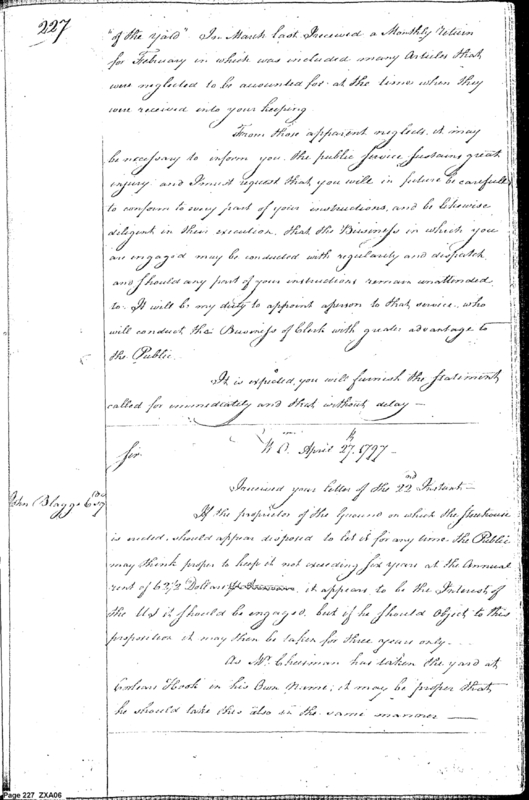 227
"of the Yard" In March last I received a Monthly return
for February in which was included many Articles that
were neglected to be accounted for at the time when they
were received into your keeping
From those apparent neglects, it may
be necessary to inform you the public Service Sustains great
injury and I must request that you will in future be carefull
to conform to every part of your instructions, and be likewise
diligent in their execution, that the Business in which you
are engaged may be conducted with regularity and dispatch
and Should any part of your instructions remain unattended
to. It will be my duty to appoint a person to that service, who
will conduct the Business of Clerk with greater advantage to
the Public
It is expected, you will furnish the Statement
called for immediately and that without delay —
Sir W D. April 27th 1797 —
John Blagge Esqr
I received your letter of the 22nd Instant —
If the proprietor of the Ground on which the Storehouse
is erected, should appear disposed to let it for any time the Public
may think proper to keep it not exceeding Six years at the Annual
rent of 62 1/2 Dollars it appears to be the Interest of
the US it should be engaged, but if he should object to this
proposition it may then be taken for three years only
As Mr Cheesman has taken the yard at
Corlears Hook in his Own Name; it may be proper that
he should take this also in the same manner —
Page 227 ZXA06